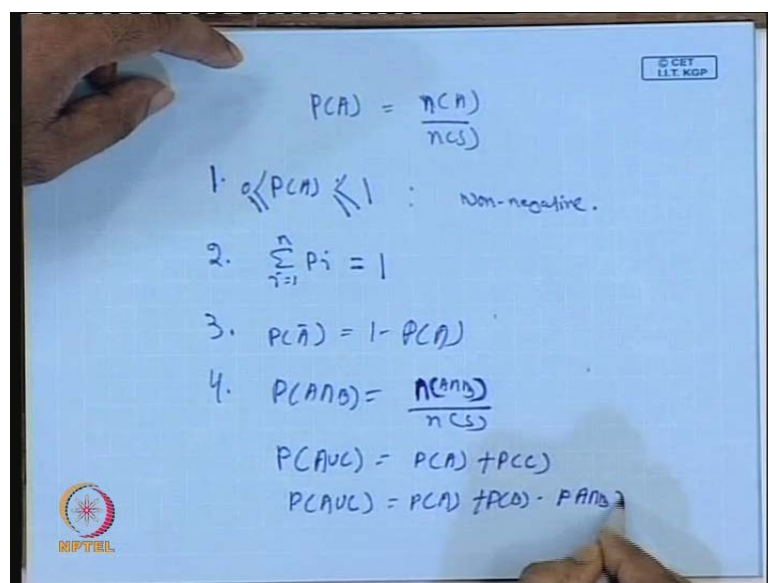 © CET
I.I.T. KGP
P(A) = n(A)
n(S)
1. 0 ≤ P(A) ≤ 1 : Non-negative.
2. n Σ i=1 Pi = 1
3. P(Ā) = 1 - P(A)
4. P(A∩B) = n(A∩B)
n(S)
P(AUC) = P(A) + P(C)
P(AUC) = P(A) + P(B) - P A∩B
NPTEL